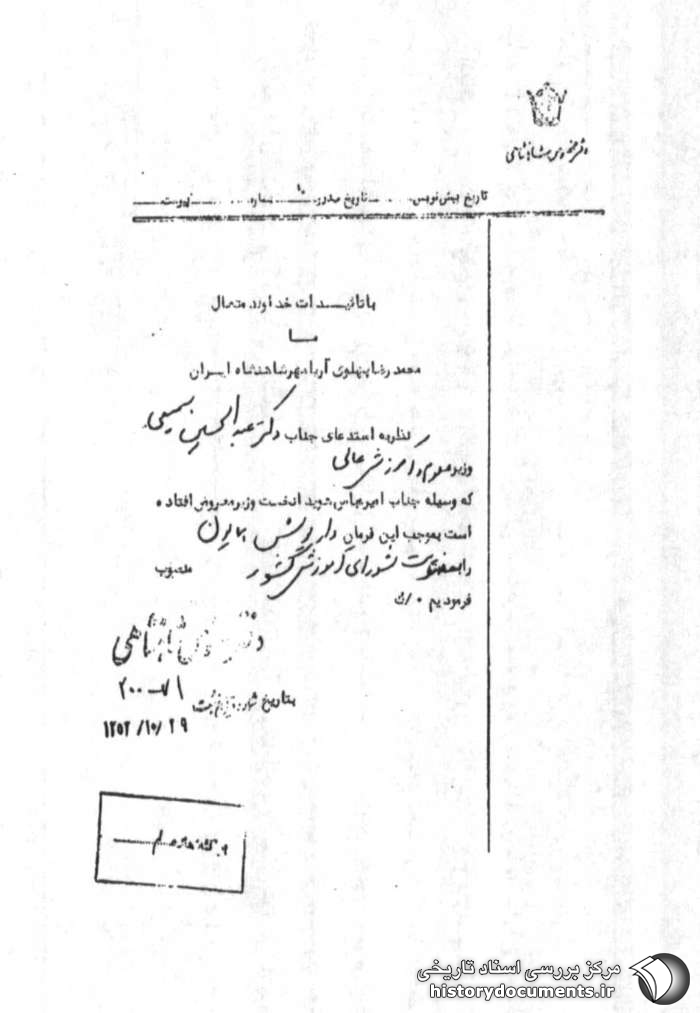 دفتر مخصوص شاهنشاهی
تاریخ پیش‌نویس ........ تاریخ صدور ........ شماره ........ پیوست ........
با تائیدات خداوند متعال
ما
محمد رضا پهلوی آریامهر شاهنشاه ایران
نظر به استدعای جناب دکتر عبدالحسین سمیعی
وزیر علوم و آموزش عالی
که وسیله جناب امیرعباس هویدا نخست وزیر معروض افتاده
است بموجب این فرمان داریوش همایون
را بعضویت شورای آموزش کشور منصوب
فرمودیم ٠/ك
دفتر مخصوص شاهنشاهی
٢٠٠-١
بتاریخ ثبت
١٣٥٢/١٠/٢٩
مرکز بررسی اسناد تاریخی
historydocuments.ir